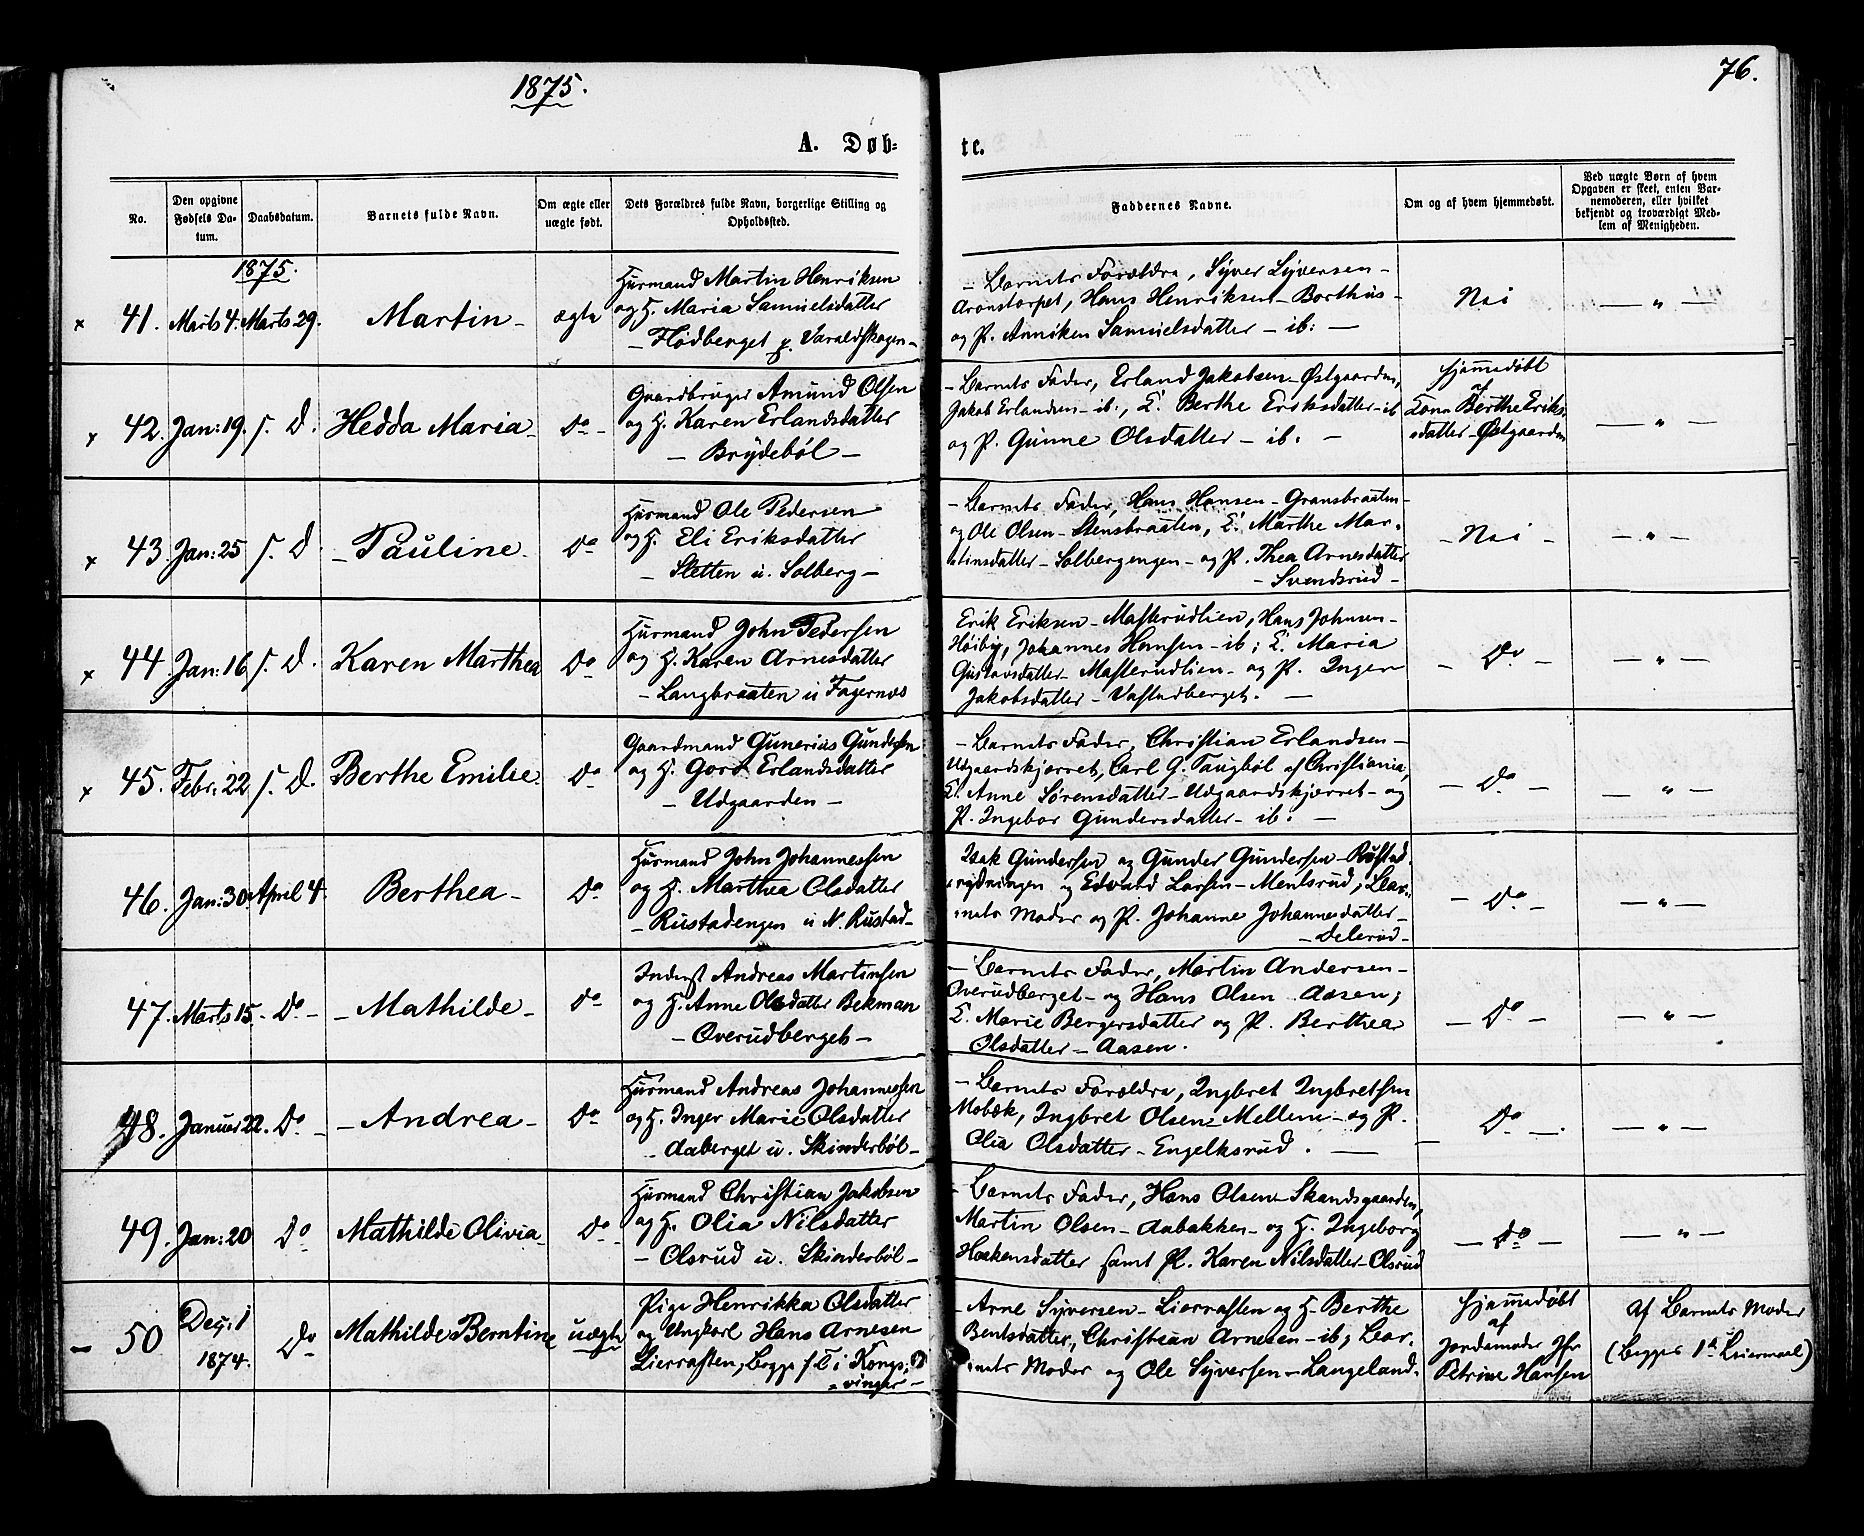 1875.
76.
A. Døb-
te.
No.
Den opgivne Fødsels Da-tum.
Daabsdatum.
Barnets fulde Navn.
Om ægte eller uægte født.
Dets Forældres fulde Navn, borgerlige Stilling og Opholdssted.
Faddernes Navne.
Om og af hvem hjemmedøbt.
Ved uægte Børn af hvem Opgaven er skeet, enten Bar-nemoderen, eller hvilket bekjendt og troværdigt Med-lem af Menigheden.
1875.
x 41. Marts 4. Marts 29. Martin - ægte
Husmand Martin Henriksen
og H. Maria Samuelsdatter
- Flødberget p. Varaldskogen -
- Barnets Forældre, Syver Syversen -
Aronstorpet, Hans Henriksen - Borthus -
og P. Anniken Samuelsdatter - ib: -
Nei
- " -
x 42. Jan: 19. s. D. Hedda Maria - Do -
Gaardbruger Amund Olsen
og H. Karen Erlandsdatter
- Brydeböl -
- Barnets Fader, Erland Jakobsen - Østgaarden,
Jakob Erlandsen - ib:, E. Berthe Eriksdatter - ib
og P. Gunne Olsdatter - ib. -
Hjemmedøbt
af
Kone Berthe Eriks-
datter - Østgaarden
- " -
x 43. Jan: 25 s. D. - Pauline - Do
Husmand Ole Pedersen
og H. Eli Eriksdatter
- Sletten u. Solberg -
- Barnets Fader, Hans Hansen - Gransbraaten -
og Ole Olsen - Stensbraaten, E. Marthe Mar-
tinsdatter - Solbergengen - og P. Thea Arnesdatter
- Svendsrud -
- Nei -
- " -
x 44. Jan: 16 s. D. Karen Marthea Do
Husmand John Pedersen
og H. Karen Arnesdatter
- Langbraaten u Fagernes
Erik Eriksen - Masterudlien, Hans Johnsen -
Høiby, Johannes Hansen - ib; E. Maria
Gustavsdatter - Masterudlien - og P. Inger
Jakobsdatter - Vastadberget. -
- Do -
- " -
x 45. Febr: 22 s. D. Berthe Emilie - Do
Gaardmand Gunerius Gundersen
og H. Goro Erlandsdatter
- Udgaarden -
- Barnets Fader, Christian Erlandsen -
Udgaardskjærret, Carl G. Taugbøl af Christiania,
E. Anne Sørensdatter - Udgaardskjærret - og
P. Ingebor Gundersdatter - ib: -
- Do -
- " -
46. Jan: 30. April 4. Berthea - Do
Husmand John Johannessen
og H. Marthea Olsdatter
- Rustadengen u N. Rustad -
Isak Gundersen og Gunder Gundersen - Rustad-
rydningen og Edvard Larsen - Mentsrud, Bar-
nets Moder og P. Johanne Johannesdatter -
- Delerud -
- Do -
- " -
47. Marts 15. - Do - - Mathilde - Do -
Inderst Andreas Martinsen
og H. Anne Olsdatter Bekman
- Overudberget -
- Barnets Fader, Martin Andersen -
Overudberget - og Hans Olsen Aasen;
E. Marie Bergersdatter og P. Berthea
Olsdatter - Aasen.
- Do -
- " -
48. Januar 22. Do - - Andrea - Do
Husmand Andreas Johannessen
og H. Inger Marie Olsdatter
- Aaberget u. Skinderböl -
- Barnets Forældre, Ingbret Ingbretsen
Mobæk, Ingbret Olsen - Mellem - og P.
Olia Olsdatter - Engelksrud. -
- Do -.
- " -
49. Jan: 20 Do Mathilde Olivia - Do
Husmand Christian Jakobsen
og H. Olia Nilsdatter
- Olsrud u. Skinderböl -
- Barnets Fader, Hans Olsen - Skandsgaarden,
Martin Olsen - Aabakken - og H. Ingeborg
Haakensdatter samt P. Karen Nilsdatter - Olsrud
- Do -
- " -
- 50 Dec: 1 1874. Do Mathilde Berntine uægte
Pige Henrikka Olsdatter
og Ungkarl Hans Arnesen
Lierrasten, Begge f. T. i Kongs-
vinger -
- Arne Syversen - Lierrasten og H. Berthe
Bentsdatter, Christian Arnesen - ib; Bar-
nets Moder og Ole Syversen - Langeland.
Hjemmedøbt
af
Jordemoder Jfr
Petrine Hansen
Af Barnets Moder
(Begges 1ste Leiermaal)